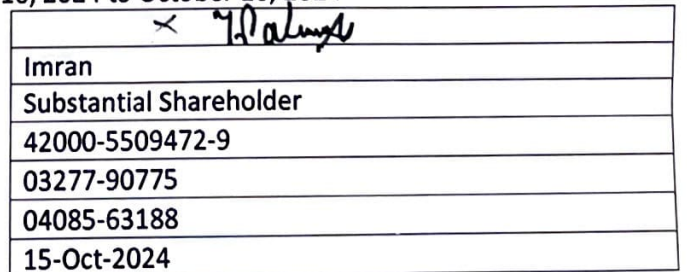 2024 to October
×
Imran
Substantial Shareholder
42000-5509472-9
03277-90775
04085-63188
15-Oct-2024